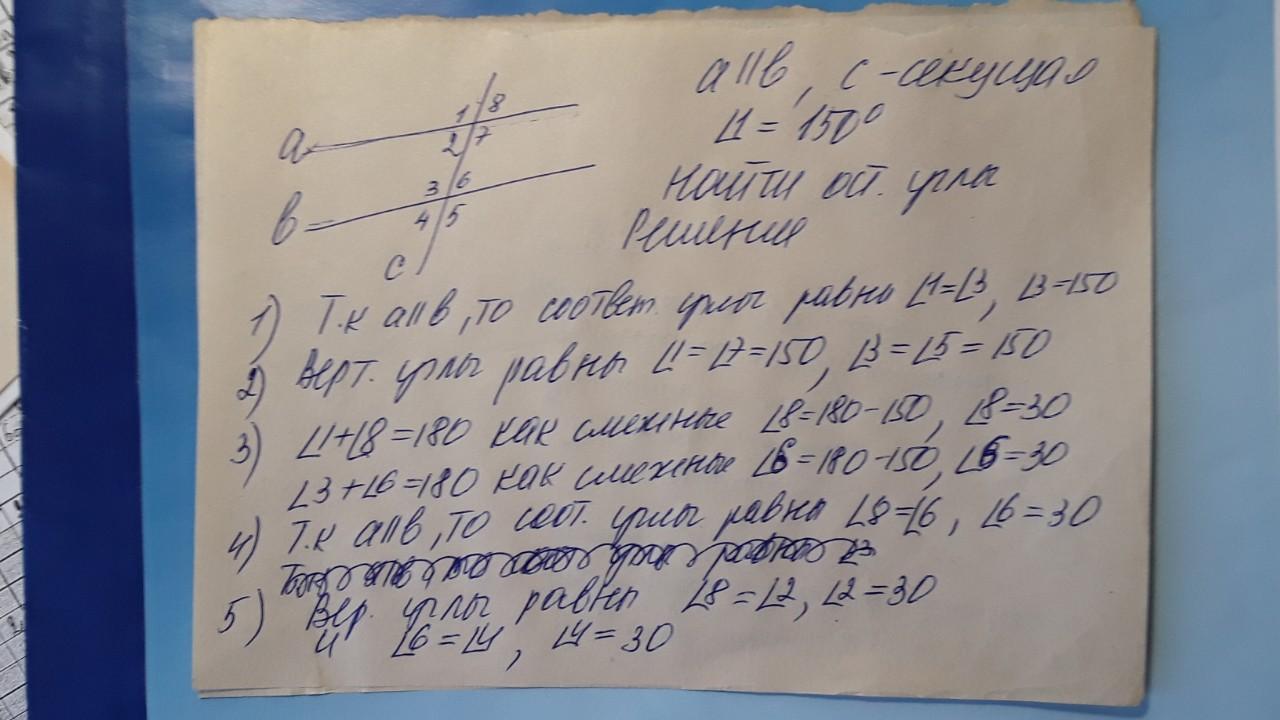 a||b, c-секущая
∠1 = 150°
Найти ост. углы
Решение
a
b
c
1 8
2 7
3 6
4 5
1) Т.к a||b, то соответ. углы равны ∠1=∠3, ∠3=150
2) Верт. углы равны ∠1=∠7=150, ∠3=∠5=150
3) ∠1+∠8=180 как смежные ∠8=180-150, ∠8=30
∠3+∠6=180 как смежные ∠6=180-150, ∠6=30
4) Т.к a||b, то соот. углы равны ∠8=∠6, ∠6=30
5) Вер. углы равны ∠8=∠2, ∠2=30
и ∠6=∠4, ∠4=30